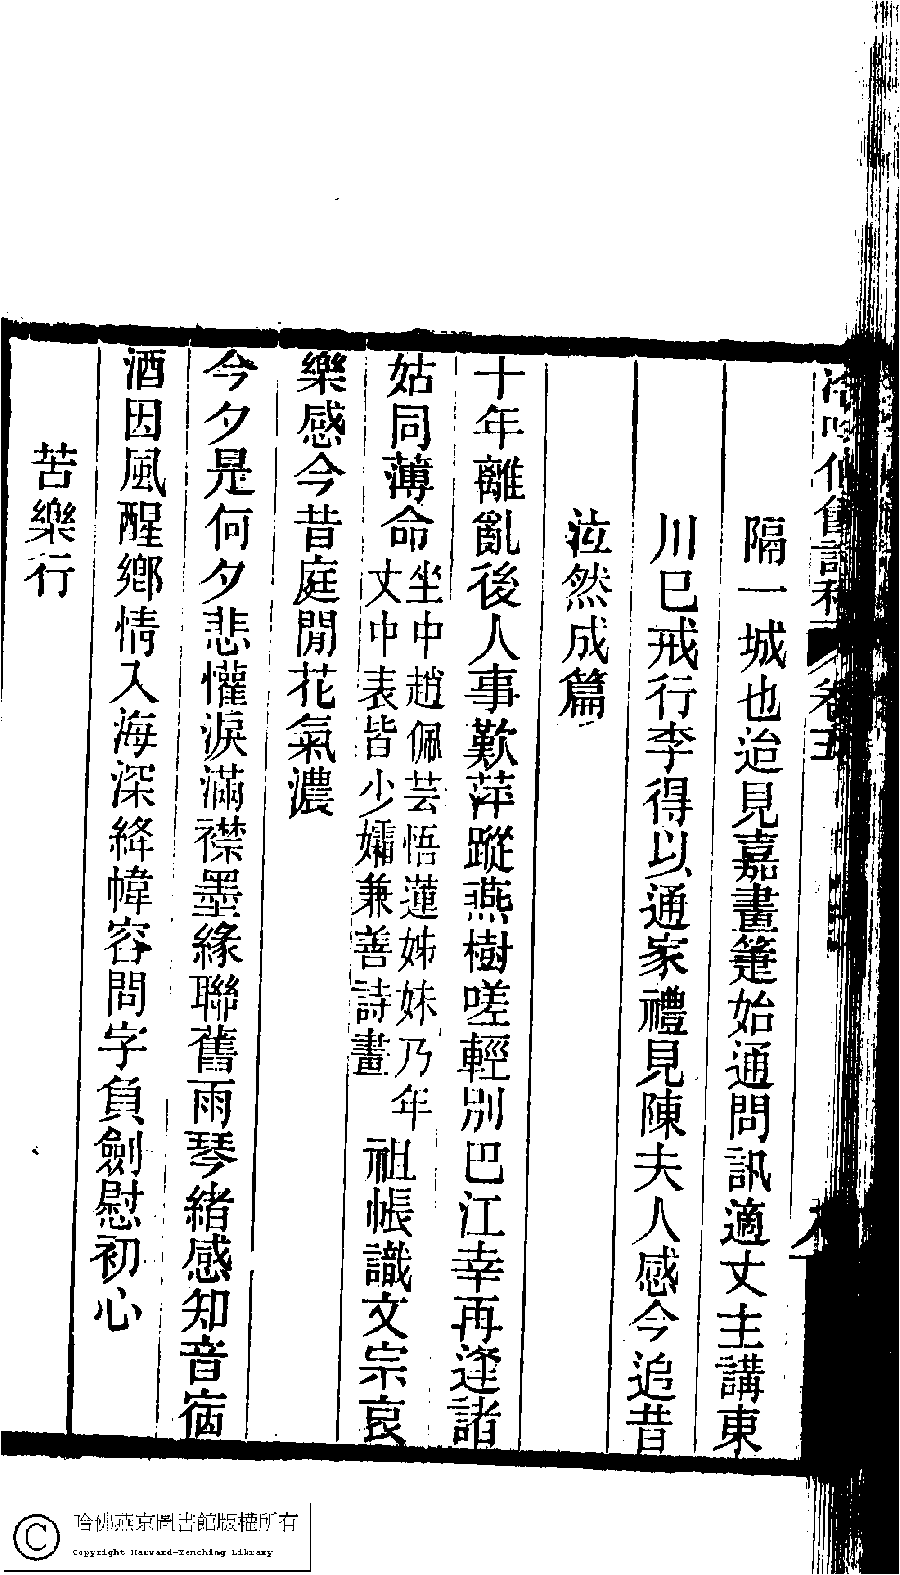 隔一城也迨見嘉畫箑始通問訊適丈主講東
川巳戒行李得以通家禮見陳夫人感今追昔
泣然成篇
十年離亂後人事歎萍蹤燕樹嗟輕別巴江幸再逢諸
姑同薄命坐中趙佩芸悟蓮姊妹乃年丈中表皆少孀兼善詩畫祖帳識文宗哀
樂感今昔庭閒花氣濃
今夕是何夕悲懽淚滿襟墨緣聯舊雨琴緒感知音病
酒因風醒鄉情入海深絳幃容問字負劍慰初心
苦樂行
哈佛燕京圖書館版權所有
Copyright Harvard-Yenching Library